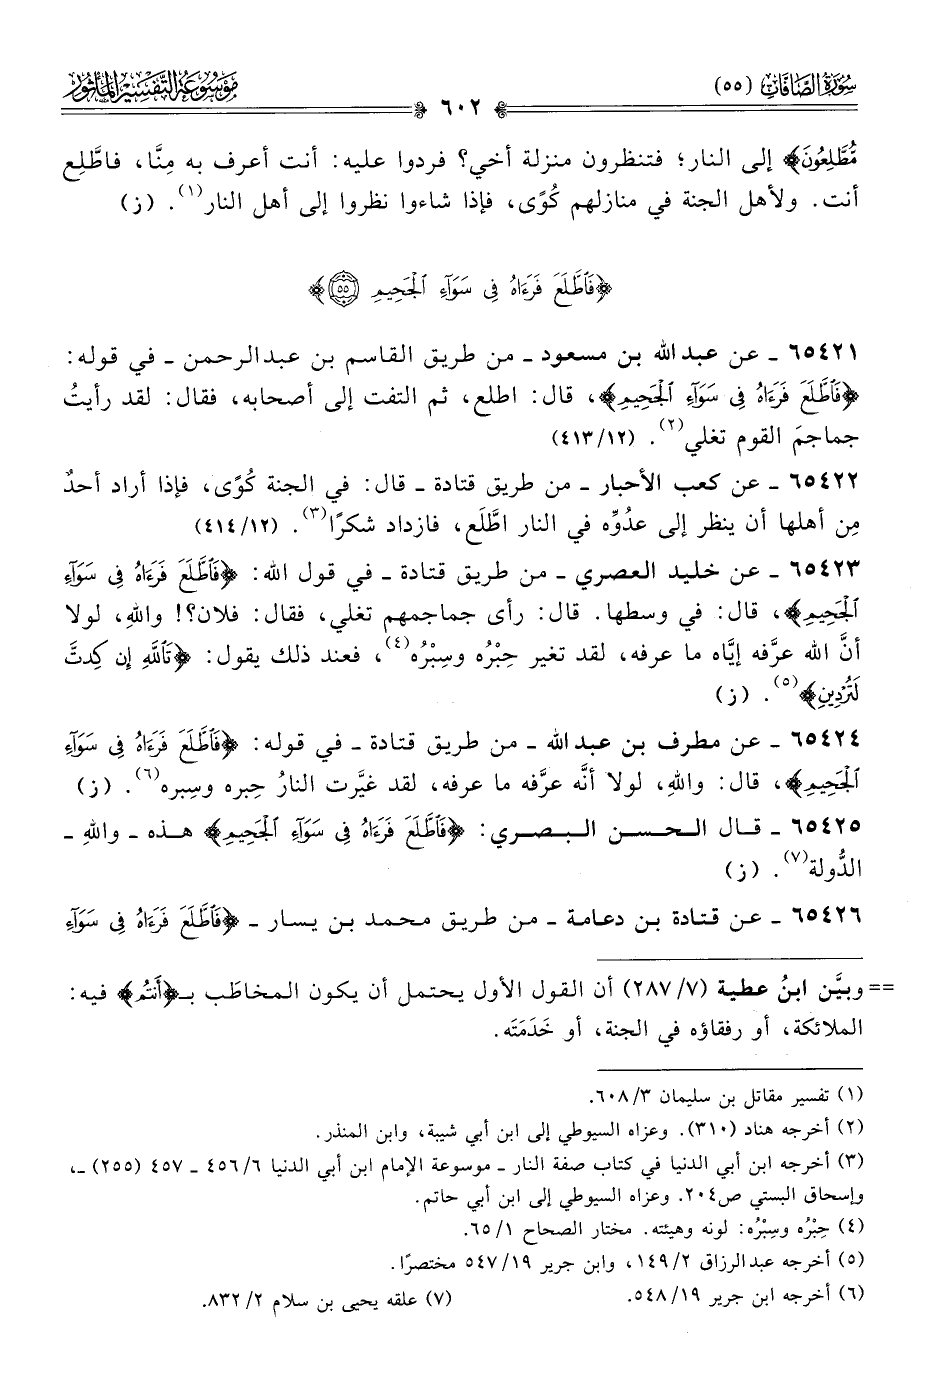 سُورَةُ الصَّافَّاتِ (٥٥)
موسوعة التفسير المأثور
٦٠٢
مُّطَّلِعُونَ﴾ إلى النار؛ فتنظرون منزلة أخي؟ فردوا عليه: أنت أعرف به مِنَّا، فاطَّلِع
أنت. ولأهل الجنة في منازلهم كُوًى، فإذا شاءوا نظروا إلى أهل النار(١). (ز)
﴿فَٱطَّلَعَ فَرَءَاهُ فِى سَوَآءِ ٱلْجَحِيمِ ٥٥﴾
٦٥٤٢١ ـ عن عبد الله بن مسعود ـ من طريق القاسم بن عبدالرحمن ـ في قوله:
﴿فَٱطَّلَعَ فَرَءَاهُ فِى سَوَآءِ ٱلْجَحِيمِ﴾، قال: اطلع، ثم التفت إلى أصحابه، فقال: لقد رأيتُ
جماجمَ القوم تغلي(٢). (٤١٣/١٢)
٦٥٤٢٢ ـ عن كعب الأحبار ـ من طريق قتادة ـ قال: في الجنة كُوًى، فإذا أراد أحدٌ
مِن أهلها أن ينظر إلى عدُوِّه في النار اطَّلَع، فازداد شكرًا(٣). (٤١٤/١٢)
٦٥٤٢٣ ـ عن خليد العصري ـ من طريق قتادة ـ في قول الله: ﴿فَٱطَّلَعَ فَرَءَاهُ فِى سَوَآءِ
ٱلْجَحِيمِ﴾، قال: في وسطها. قال: رأى جماجمهم تغلي، فقال: فلان؟! واللهِ، لولا
أنَّ الله عرَّفه إيَّاه ما عرفه، لقد تغير حِبْرُه وسِبْرُه(٤)، فعند ذلك يقول: ﴿تَٱللَّهِ إِن كِدتَّ
لَتُرْدِينِ﴾(٥). (ز)
٦٥٤٢٤ ـ عن مطرف بن عبد الله ـ من طريق قتادة ـ في قوله: ﴿فَٱطَّلَعَ فَرَءَاهُ فِى سَوَآءِ
ٱلْجَحِيمِ﴾، قال: واللهِ، لولا أنَّه عرَّفه ما عرفه، لقد غيَّرت النارُ حِبره وسِبره(٦). (ز)
٦٥٤٢٥ ـ قال الحسن البصري: ﴿فَٱطَّلَعَ فَرَءَاهُ فِى سَوَآءِ ٱلْجَحِيمِ﴾ هذه ـ واللهِ ـ
الدُّولة(٧). (ز)
٦٥٤٢٦ ـ عن قتادة بن دعامة ـ من طريق محمد بن يسار ـ ﴿فَٱطَّلَعَ فَرَءَاهُ فِى سَوَآءِ
== وبيَّن ابنُ عطية (٢٨٧/٧) أن القول الأول يحتمل أن يكون المخاطَب بـ﴿أَنتُم﴾ فيه:
الملائكة، أو رفقاؤه في الجنة، أو خَدَمَتَه.
(١) تفسير مقاتل بن سليمان ٦٠٨/٣.
(٢) أخرجه هناد (٣١٠). وعزاه السيوطي إلى ابن أبي شيبة، وابن المنذر.
(٣) أخرجه ابن أبي الدنيا في كتاب صفة النار ـ موسوعة الإمام ابن أبي الدنيا ٤٥٦/٦ ـ ٤٥٧ (٢٥٥) ـ،
وإسحاق البستي ص٢٠٤. وعزاه السيوطي إلى ابن أبي حاتم.
(٤) حِبْرُه وسِبْرُه: لونه وهيئته. مختار الصحاح ٦٥/١.
(٥) أخرجه عبدالرزاق ١٤٩/٢، وابن جرير ٥٤٧/١٩ مختصرًا.
(٦) أخرجه ابن جرير ٥٤٨/١٩.
(٧) علقه يحيى بن سلام ٨٣٢/٢.